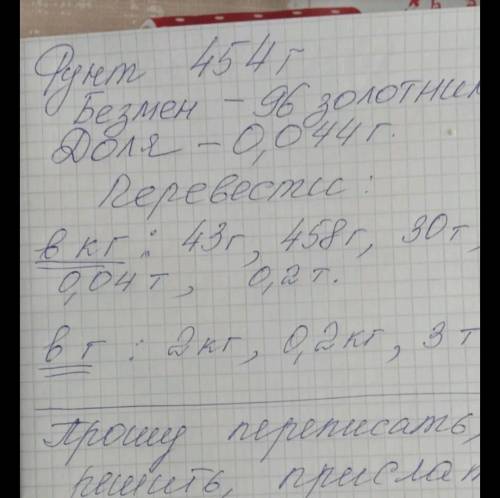 Фунт 454 г
Безмен - 96 золотник
Доля - 0,044 г.
Перевести :
в кг : 43 г, 458 г, 30 т,
0,04 т, 0,2 т.
в г : 2 кг, 0,2 кг, 3 т
Прошу переписать,
решить,